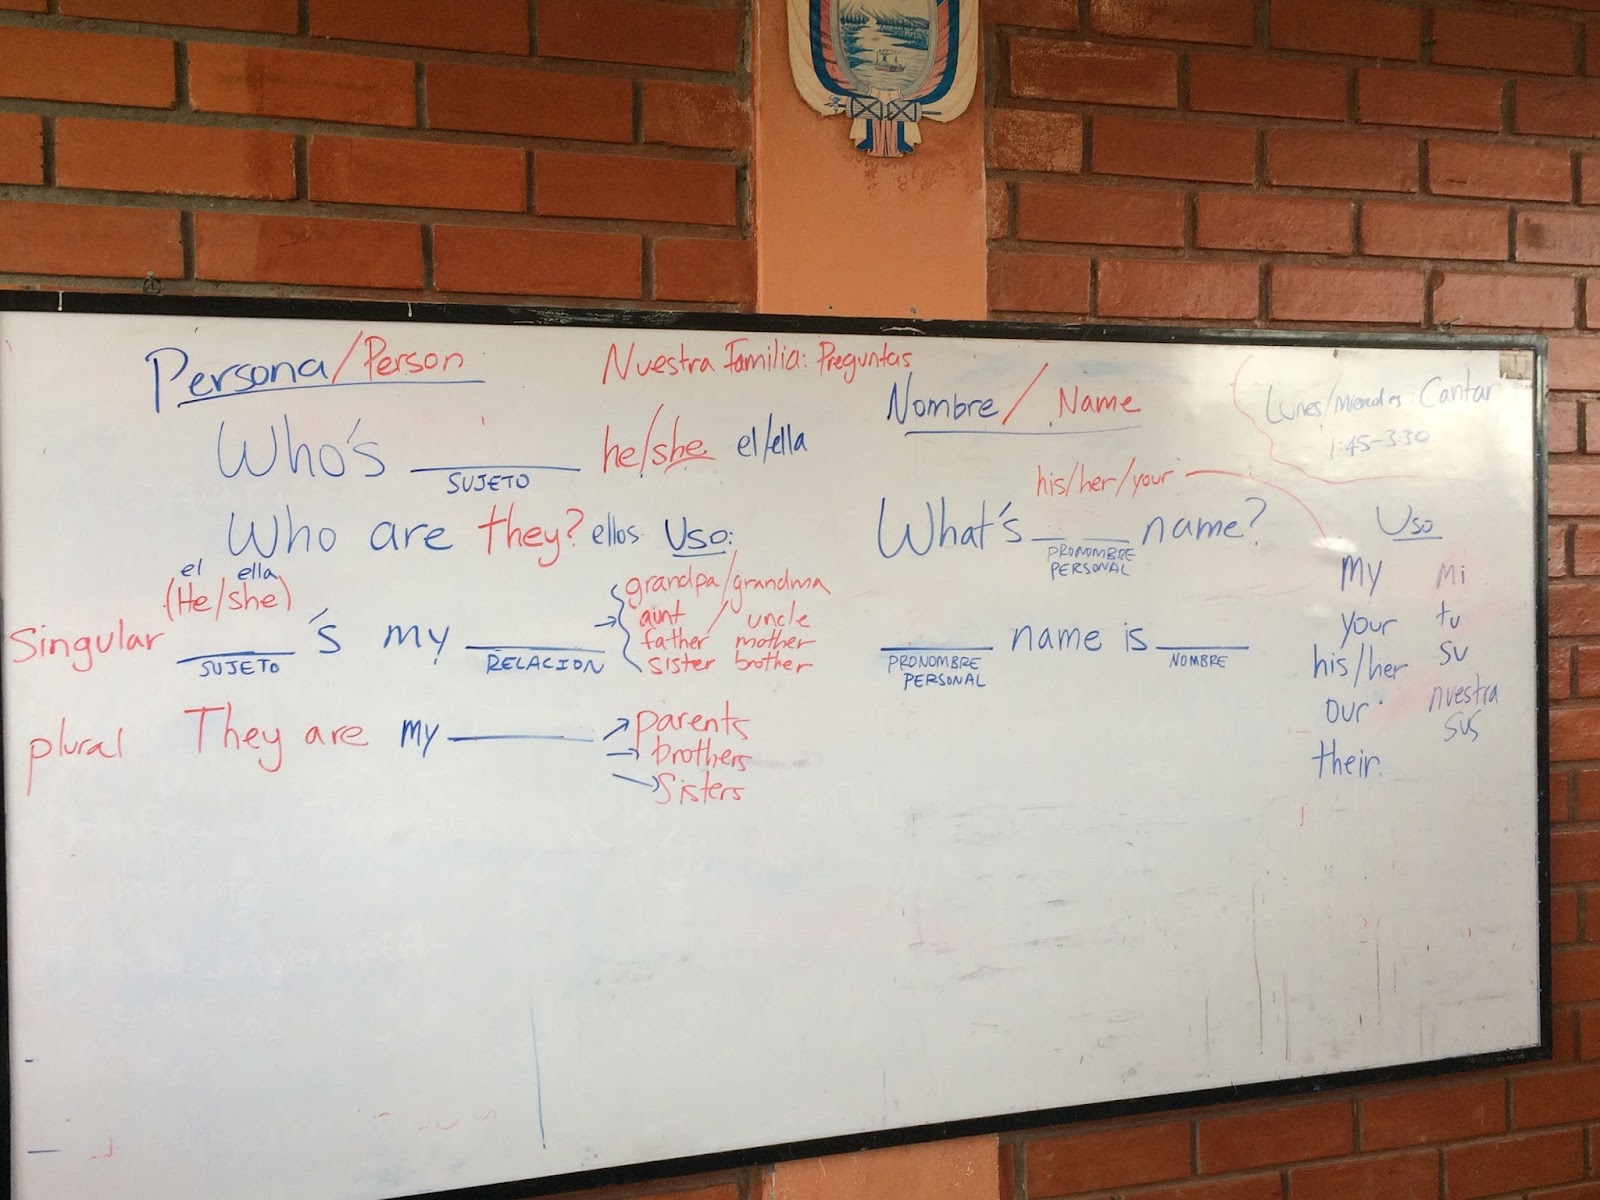 Persona/Person
Who's ____ he/she el/ella
SUJETO
Who are they? ellos
el ella
(He/she)
Singular ____'s my ____
SUJETO RELACION
plural They are my ____
Nuestra Familia: Preguntas
Uso:
grandpa/grandma
aunt / uncle
father mother
sister brother
parents
brothers
Sisters
Nombre/Name
his/her/your
What's __ __ name?
PRONOMBRE
PERSONAL
____ name is ____
PRONOMBRE NOMBRE
PERSONAL
Lunes/Miercoles: Cantar
1:45-3:30
Uso
my mi
your tu
his/her su
our nuestra
their sus